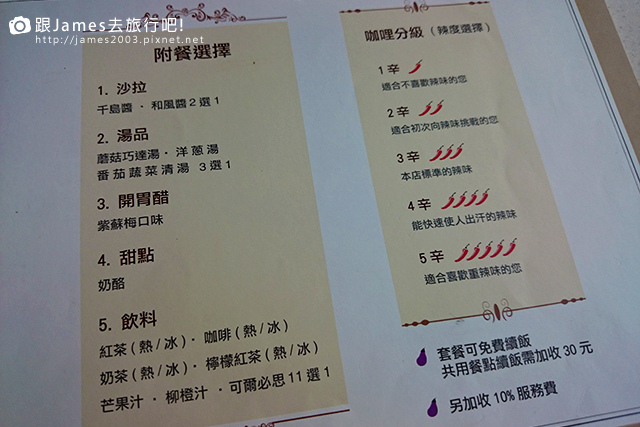 跟James去旅行吧!
http://james2003.pixnet.net
附餐選擇
1. 沙拉
千島醬 · 和風醬2選1
2. 湯品
蘑菇巧達湯 · 洋蔥湯
番茄蔬菜清湯 3選1
3. 開胃醋
紫蘇梅口味
4. 甜點
奶酪
5. 飲料
紅茶(熱/冰) · 咖啡(熱/冰)
奶茶(熱/冰) · 檸檬紅茶(熱/冰)
芒果汁 · 柳橙汁 · 可爾必思11選1
咖哩分級(辣度選擇)
1辛
適合不喜歡辣味的您
2辛
適合初次向辣味挑戰的您
3辛
本店標準的辣味
4辛
能快速使人出汗的辣味
5辛
適合喜歡重辣味的您
套餐可免費續飯
共用餐點續飯需加收30元
另加收10%服務費